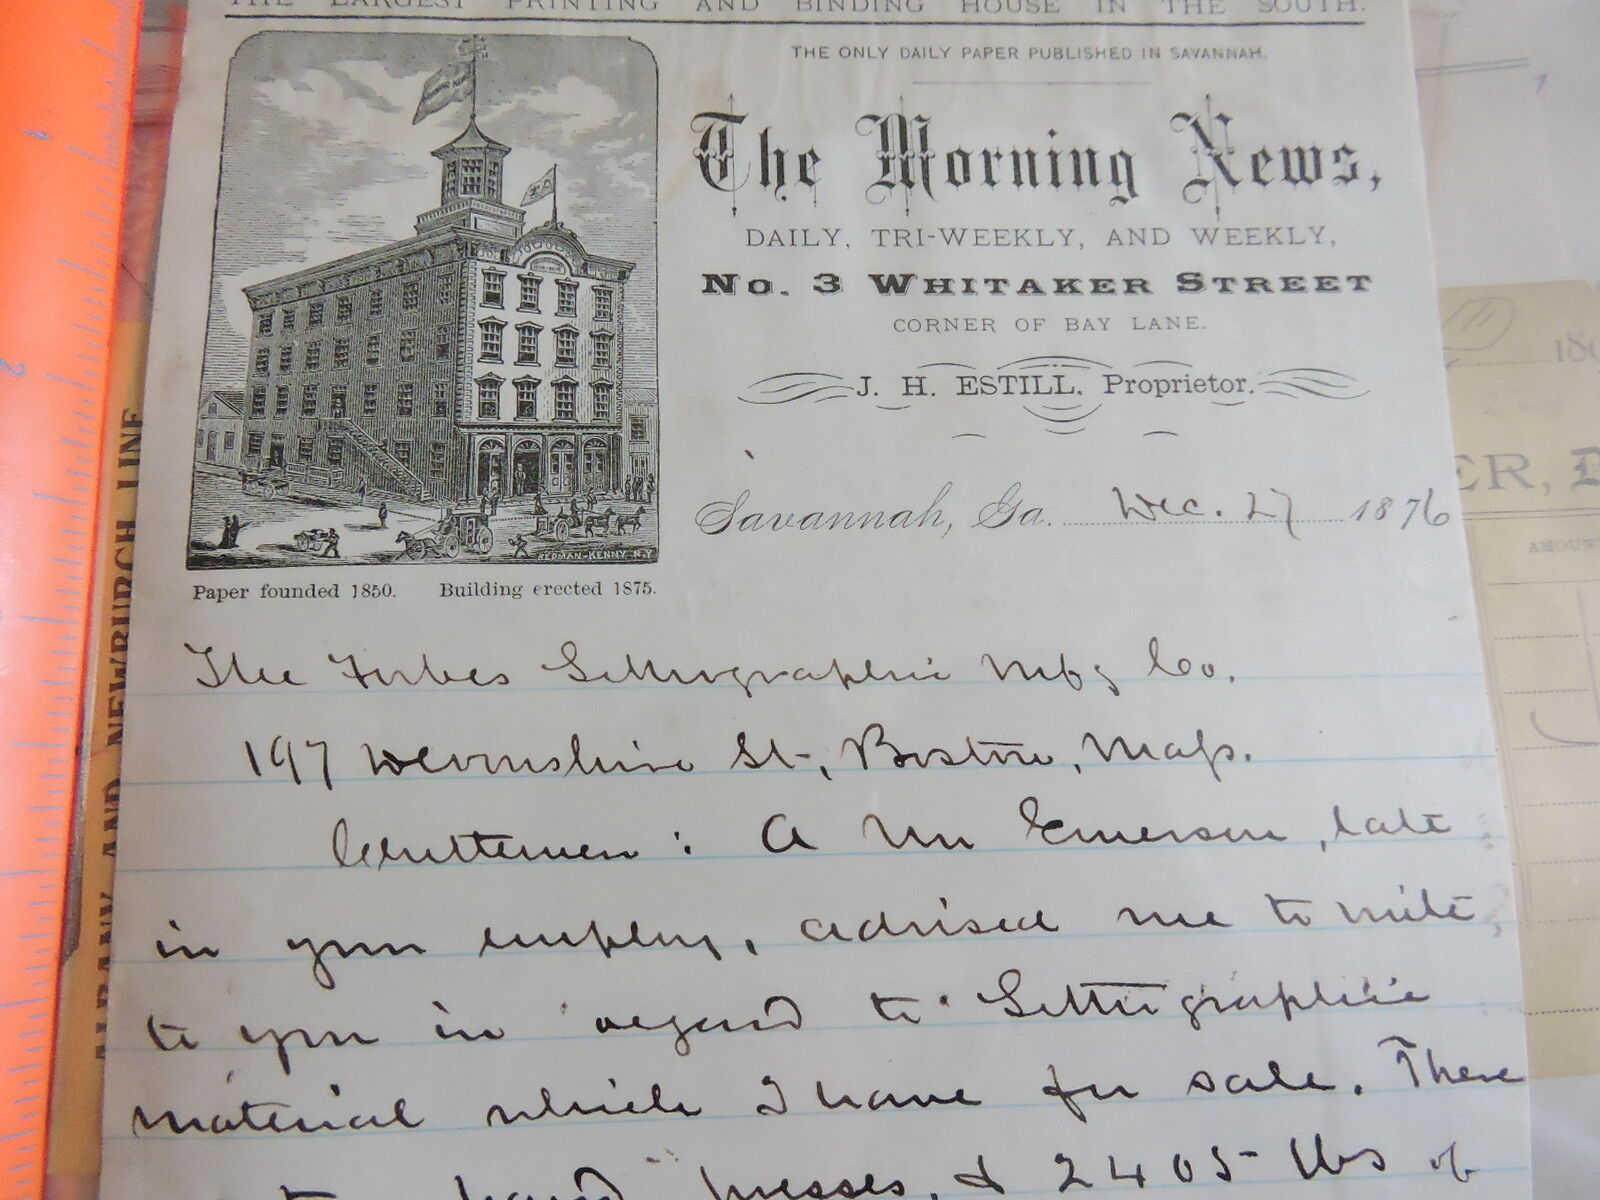 THE LARGEST PRINTING AND BINDING HOUSE IN THE SOUTH.
THE ONLY DAILY PAPER PUBLISHED IN SAVANNAH.
The Morning News,
DAILY, TRI-WEEKLY, AND WEEKLY,
No. 3 WHITAKER STREET
CORNER OF BAY LANE.
J. H. ESTILL, Proprietor.
Savannah, Ga. Dec. 27 1876
KENNY N.Y
Paper founded 1850. Building erected 1875.
The Forbes Lithographic Mfg Co.
197 Devonshire St, Boston, Mass.
Gentlemen: A Mr Emerson, late
in your employ, advised me to write
to you in regard to Lithographic
material which I have for sale. There
hand presses, & 2405 lbs of
ALBANY AND NEWBURGH LINE
ER, D
AMOUN